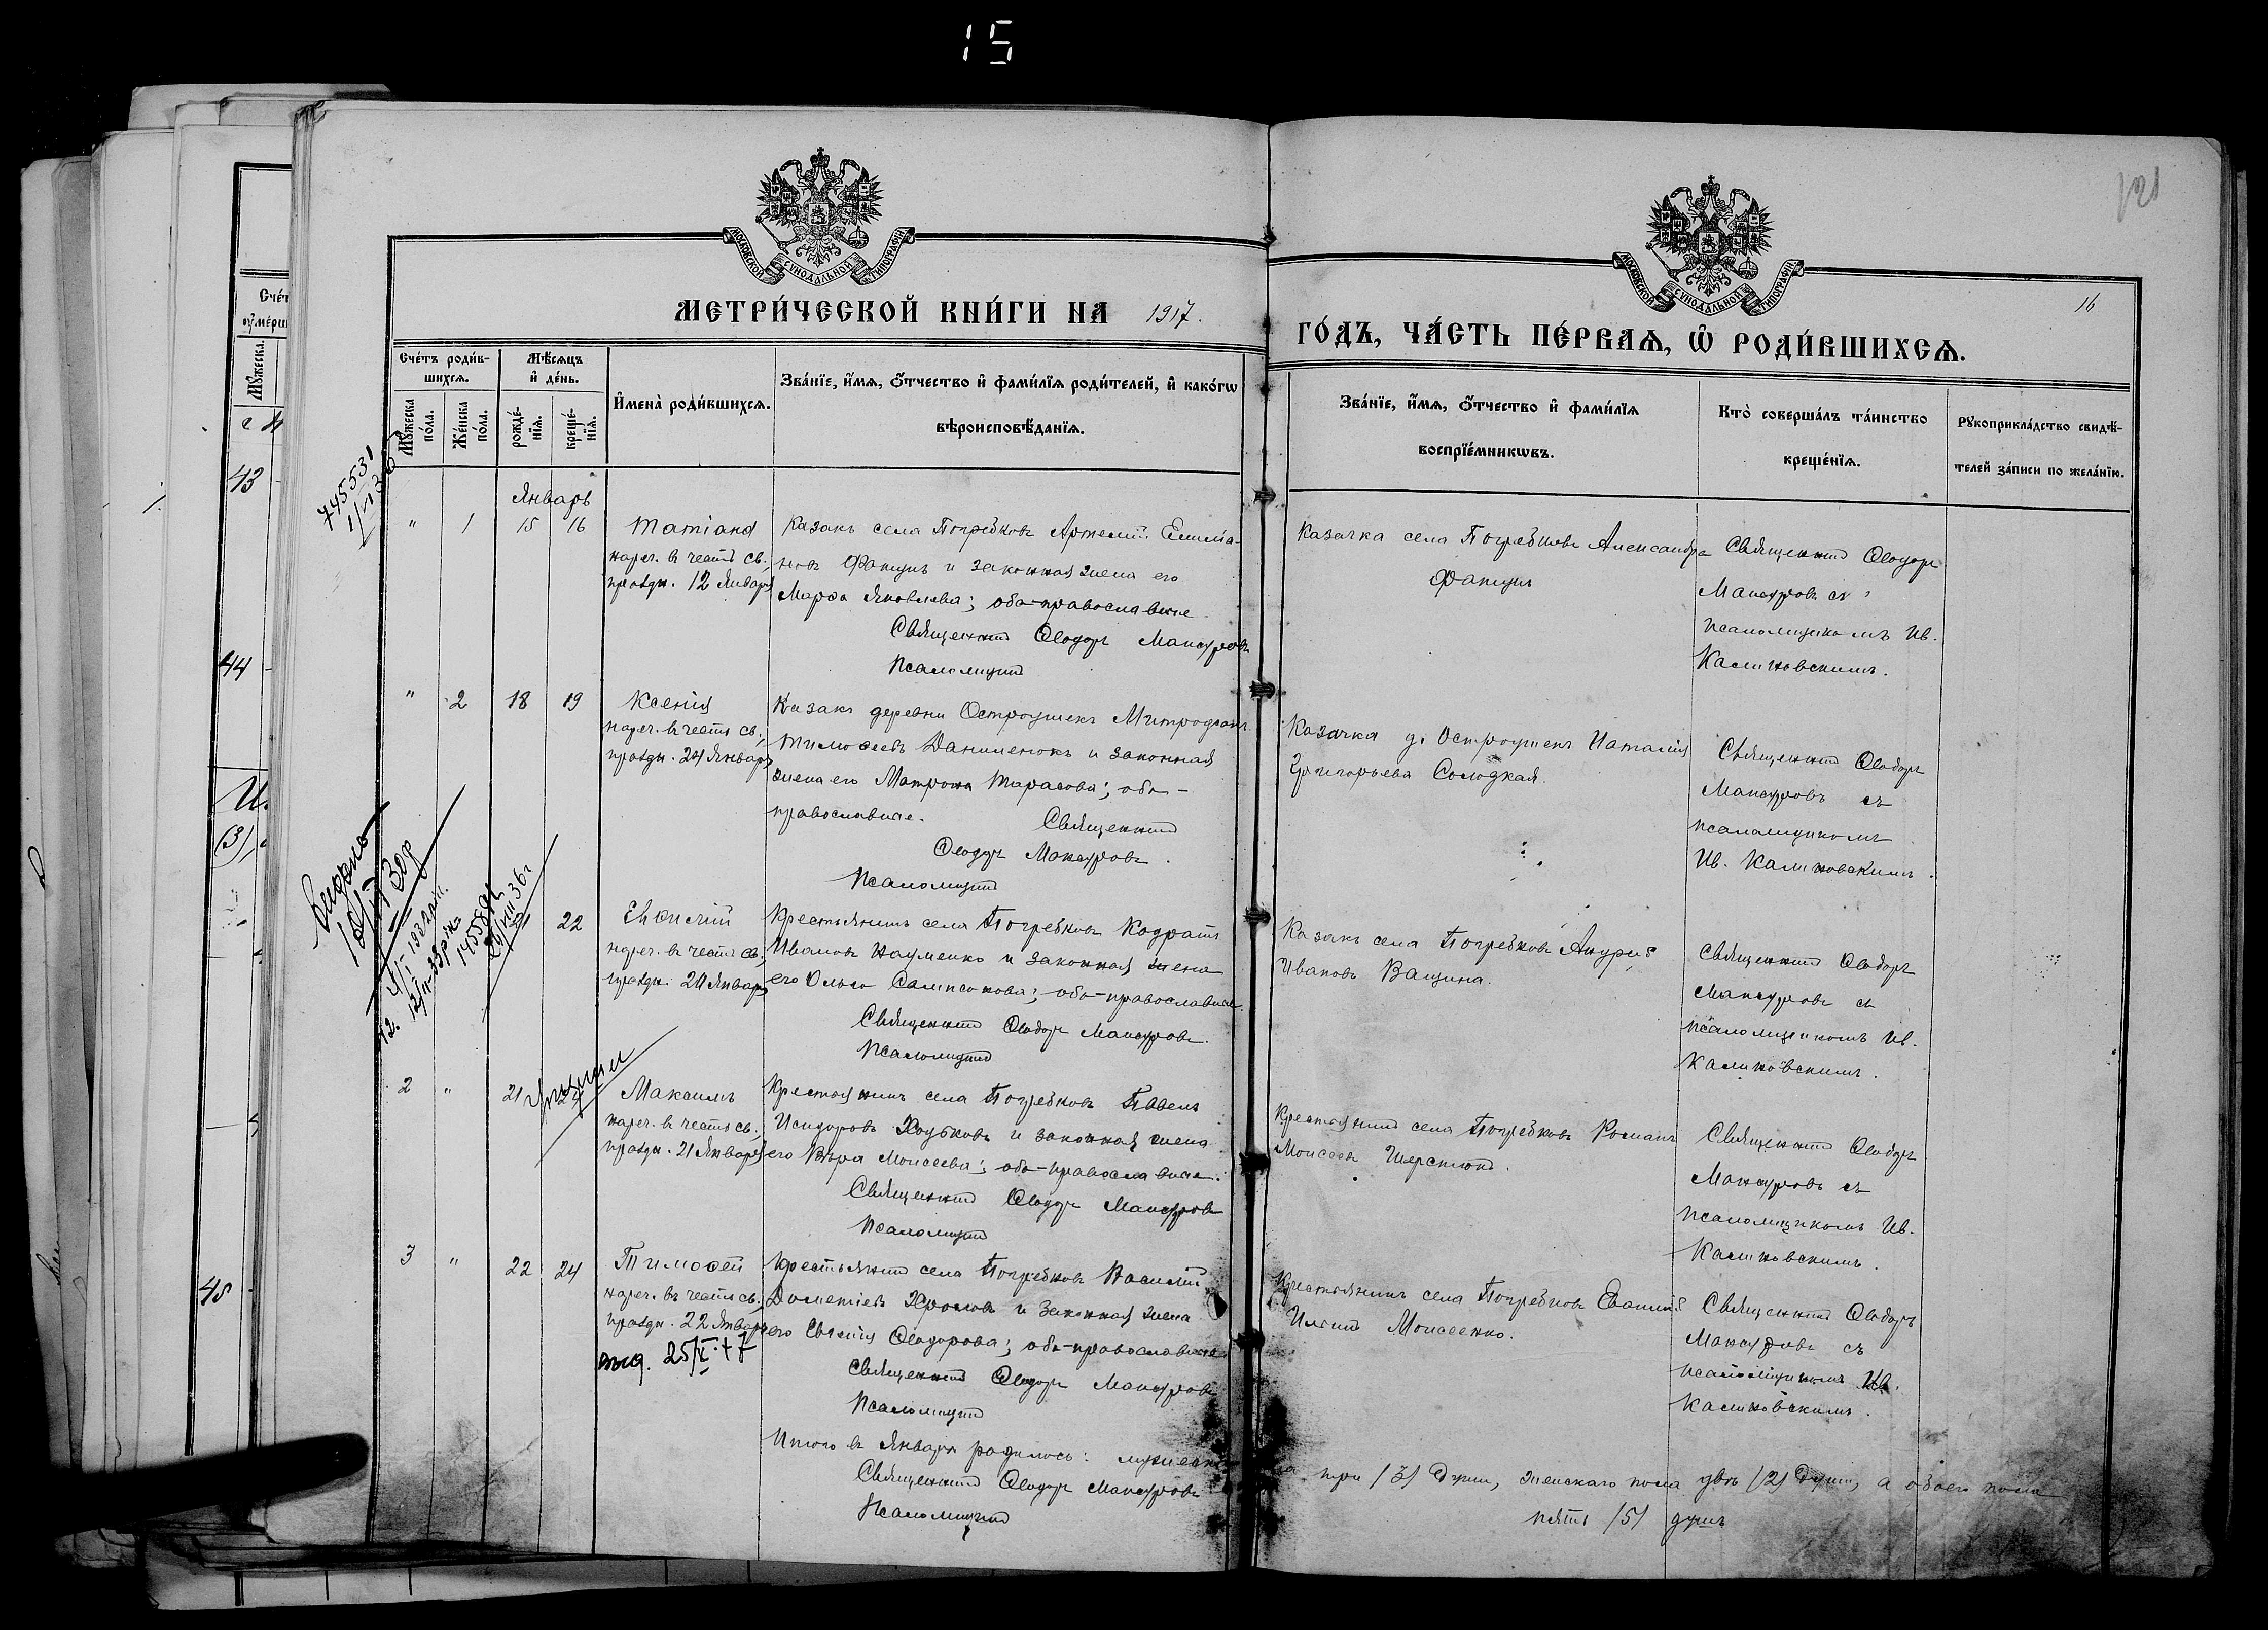 15
МОСКОВСКОЙ СѴНОДАЛЬНОЙ ТИПОГРАФІИ
МОСКОВСКОЙ СѴНОДАЛЬНОЙ ТИПОГРАФІИ
МЕТРИ́ЧЕСКОЙ КНИ́ГИ НА 1917.
ГО́ДЪ, ЧА́СТЬ ПЕ́РВАѦ, Ѡ҆ РОДИ́ВШИХСѦ.
16
Сче́тъ роди́в-
шихсѧ.
Мѣ́сѧцъ
и҆ де́нь.
Мꙋ́жеска
по́ла.
Же́нска
по́ла.
рожде́-
нїѧ.
креще́-
нїѧ.
И҆мена̀ роди́вшихсѧ.
Зва́нїе, и҆́мѧ, ѻ҆́тчество и҆ фами́лїѧ роди́телей, и҆ како́гѡ
вѣроисповѣ́данїѧ.
Зва́нїе, и҆́мѧ, ѻ҆́тчество и҆ фами́лїѧ
воспрїе́мникѡвъ.
Кто̀ соверша́лъ та́инство
креще́нїѧ.
Рꙋкоприкла́дство свидѣ́-
телей за́писи по жела́нїю.
Январь
" 1 15 16
Татіана
нареч. в честь св.,
праздн. 12 Января
Казакъ села Погребковъ Артемій Емелья-
новъ Фащунъ и законная жена его
Марѳа Яковлева; оба православные.
Священникъ Ѳеодоръ Мансуровъ
Псаломщикъ
Казачка села Погребковъ Александра
Фащунъ
Священникъ Ѳеодоръ
Мансуровъ съ
псаломщикомъ Ив.
Калиновскимъ.
" 2 18 19
Ксенія
нареч. в честь св.,
праздн. 24 Января
Казакъ деревни Остроушекъ Митрофанъ
Тимоѳеевъ Даниленокъ и законная
жена его Матрона Тарасова; оба-
православные. Священникъ
Ѳеодоръ Мансуровъ.
Псаломщикъ
Казачка д. Остроушекъ Наталія
Григорьева Солодкая.
Священникъ Ѳеодоръ
Мансуровъ съ
псаломщикомъ
Ив. Калиновскимъ.
22
Евѳимій
нареч. в честь св.,
праздн. 20 Января
Крестьянинъ села Погребковъ Кодратъ
Ивановъ Науменко и законная жена
его Ольга Сампсонова; оба-православные.
Священникъ Ѳеодоръ Мансуровъ.
Псаломщикъ
Казакъ села Погребковъ Андрей
Ивановъ Ващина.
Священникъ Ѳеодоръ
Мансуровъ съ
псаломщикомъ Ив.
Калиновскимъ.
2 " 21
Максимъ
нареч. в честь св.,
праздн. 21 Января
Крестьянинъ села Погребковъ Павелъ
Исидоровъ Ходьковъ и законная жена
его Вѣра Моисеева; оба-православные.
Священникъ Ѳеодоръ Мансуровъ
Псаломщикъ
Крестьянинъ села Погребковъ Романъ
Моисеевъ Шерстюкъ.
Священникъ Ѳеодоръ
Мансуровъ съ
псаломщикомъ Ив.
Калиновскимъ.
3 " 22 24
Тимоѳей
нареч. въ честь св.,
праздн. 22 Января
25/X.47
Крестьянинъ села Погребковъ Василій
Дометіевъ Хромовъ и законная жена
его Евгенія Ѳеодорова; оба-православные
Священникъ Ѳеодоръ Мансуровъ
Псаломщикъ
Крестьянинъ села Погребковъ
Илiинъ Моисеенко.
Священникъ Ѳеодоръ
Мансуровъ съ
псаломщикомъ Ив.
Калиновскимъ.
Итого въ Январѣ родилось: мужеска-
го три /3/ души, женскаго пола двѣ /2/ души, а обоего пола
пять /5/ душъ
Священникъ Ѳеодоръ Мансуровъ
Псаломщикъ
43
44
45